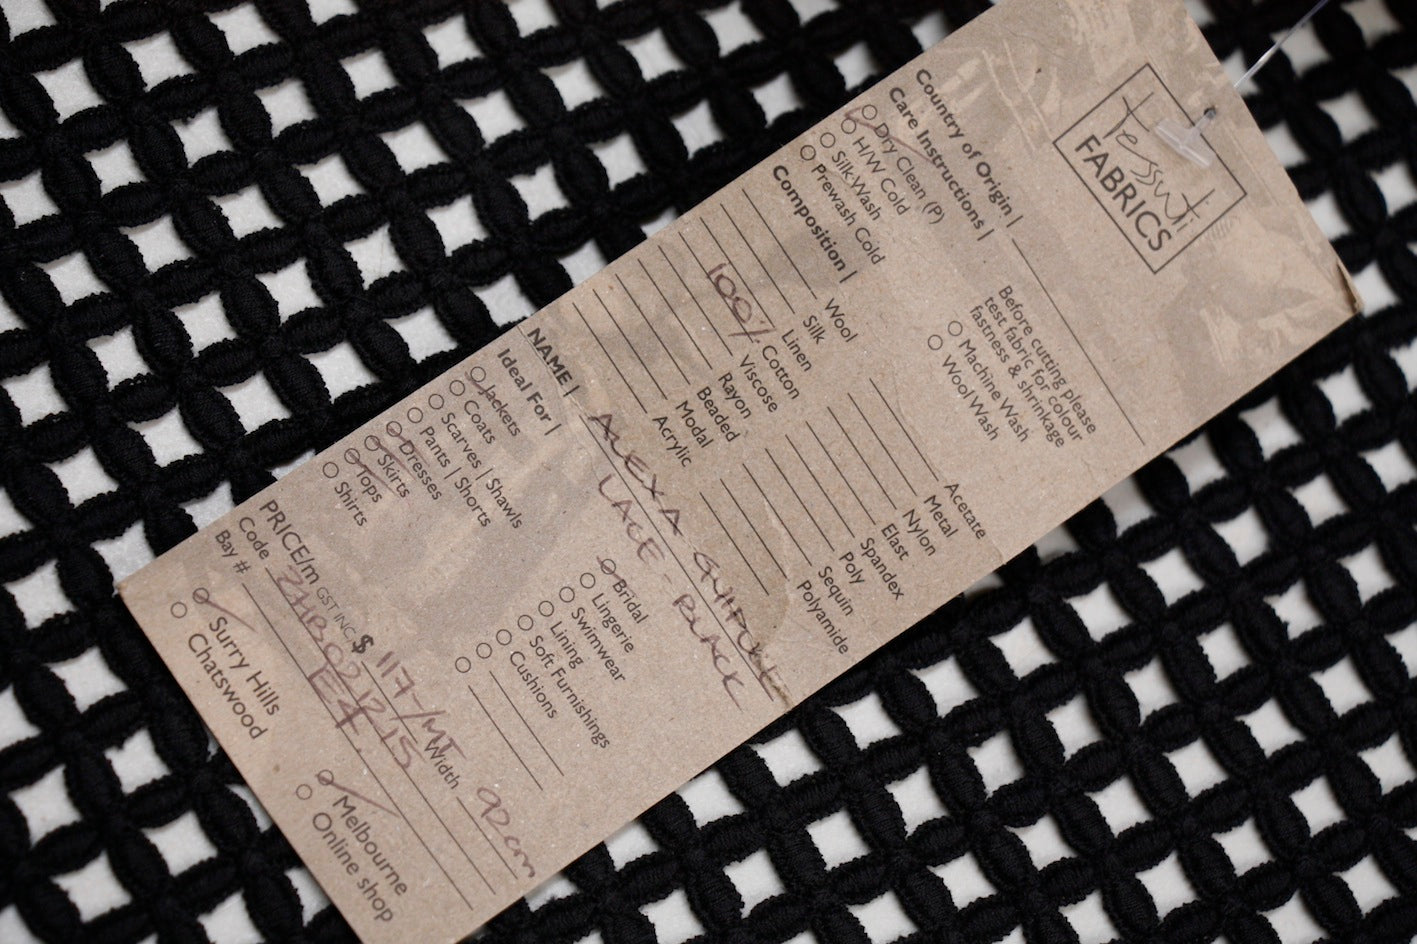 Tessuti
FABRICS
Country of Origin |
Care Instructions |
Dry Clean (P)
H/W Cold
Silk Wash
Prewash Cold
Before cutting please
test fabric for colour
fastness & shrinkage
Machine Wash
Wool Wash
Composition |
Wool
Silk
Linen
100% Cotton
Viscose
Rayon
Beaded
Modal
Acrylic
Acetate
Metal
Nylon
Elast
Spandex
Poly
Sequin
Polyamide
NAME | ALEXA GUIPURE
LACE - BLACK
Ideal For |
Jackets
Coats
Scarves | Shawls
Pants | Shorts
Dresses
Skirts
Tops
Shirts
Bridal
Lingerie
Swimwear
Lining
Soft Furnishings
Cushions
PRICE/m GST INC. $ 117/MT Width 92cm
Code ZHB021215
Bay # E4.
Surry Hills
Chatswood
Melbourne
Online shop